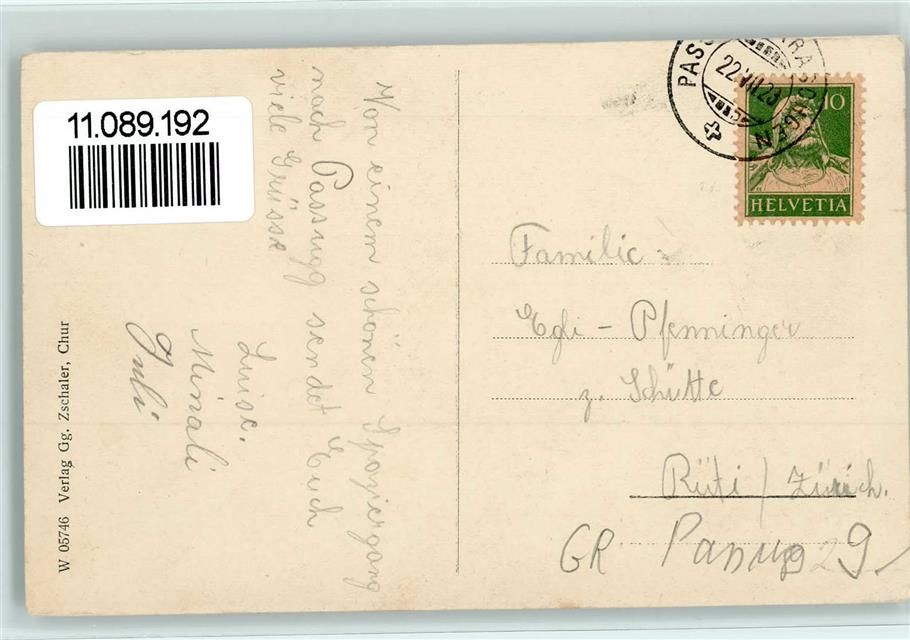 11.089.192
Von einem schönen Spaziergang
nach Passugg sendet Euch
viele Grüsse
Luise.
Minali
Juli
W 05746 Verlag Gg. Zschaler, Chur
22.VII.23
10
HELVETIA
Familie
Egli - Pfenninger
z. Schütte
Rüti / Zürich.
GR
29